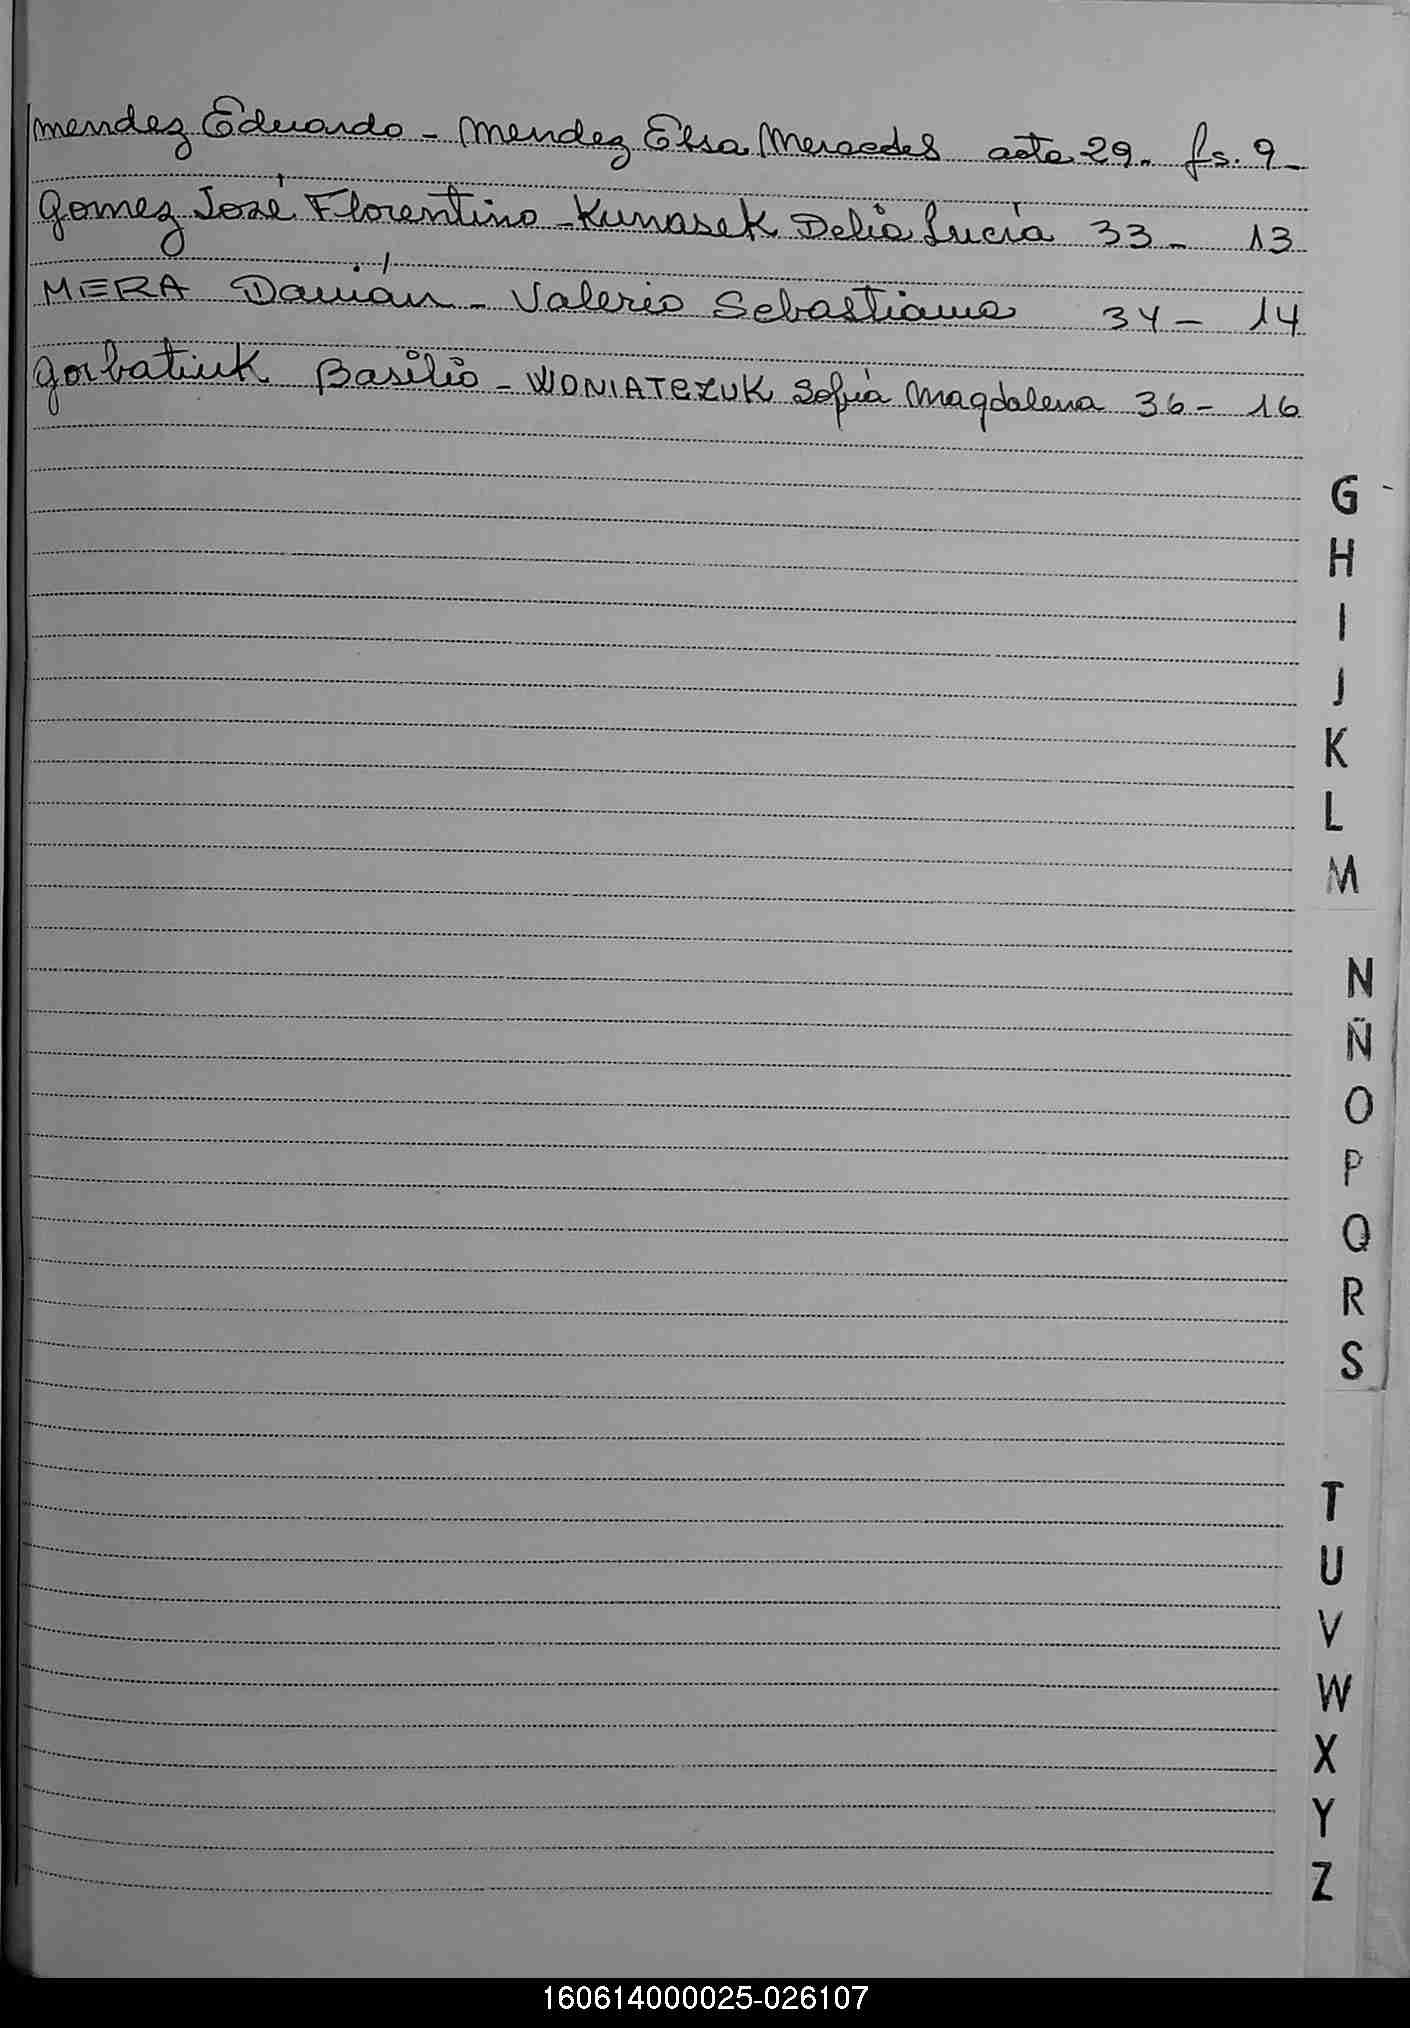 Mendez Eduardo - Mendez Elsa Mercedes acta 29. fs. 9 -
Gomez José Florentino - Kunasek Delia Lucía 33 - 13
MERA Damián - Valerio Sebastiana 34 - 14
Gorbatiuk Basilio - WONIATCZUK Sofía Magdalena 36 - 16
G
H
I
J
K
L
M
N
Ñ
O
P
Q
R
S
T
U
V
W
X
Y
Z
160614000025-026107